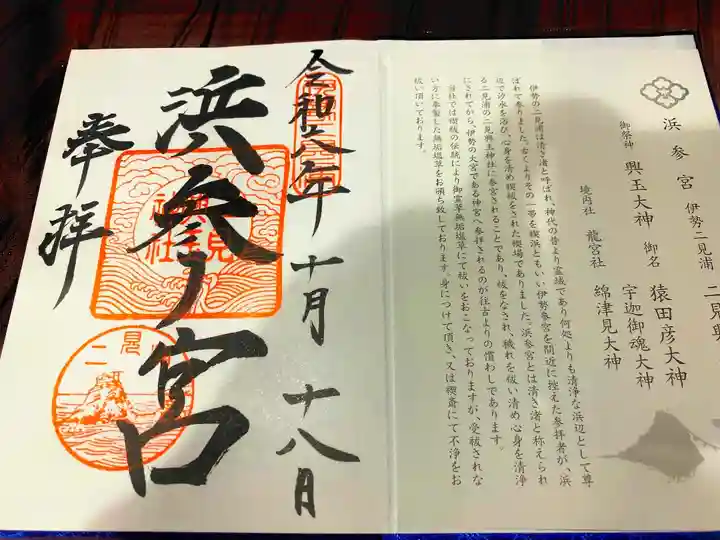 二見興
浜参宮 伊勢二見浦
御祭神 興玉大神 御名 猿田彦大神
宇迦御魂大神
境内社 龍宮社 綿津見大神
伊勢の二見浦は清き渚と呼ばれ、神代の昔より霊域であり何処よりも清浄な浜辺として尊
ばれて参りました。古くよりその一帯を横浜ともいい伊勢参宮を間近に控えた参拝者が、浜
辺で汐水を浴び、心身を清め禊祓をされた禊場でありました。浜参宮とは清き渚と称えられ
る二見浦の二見興玉神社に参宮されることであり、祓をなされ、穢れを祓い清め心身を清浄
にされてから、伊勢の大宮である神宮へ参拝されるのが往古よりの慣わしであります。
当社では禊祓の伝統により御霊草無垢塩草にて祓いをおこなっておりますが、受祓されな
い方に奉製した無垢塩草をお頒ち致しております。身につけて頂き、又は禊斎にて不浄をお
祓い頂いております。
令和六年十月十八日
浜参宮
奉拝
二見
興玉
神社
二見浦